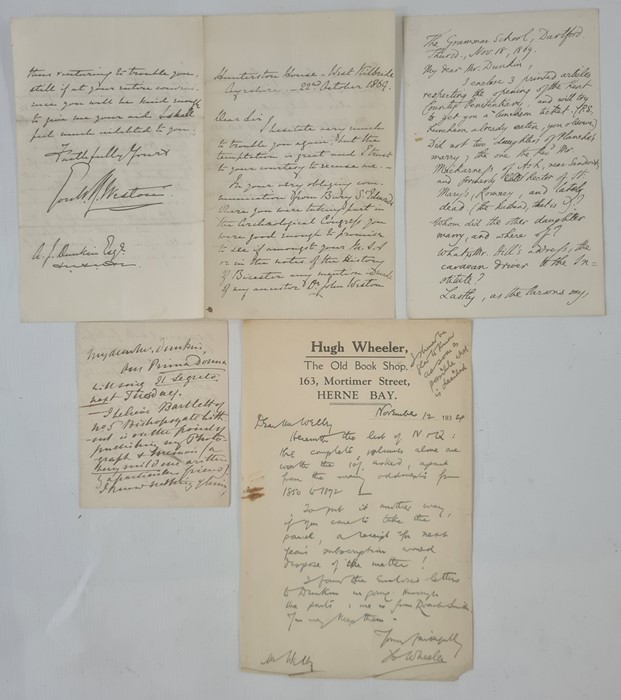 thus venturing to trouble you,
still if at your entire conveni-
ence you will be kind enough
to give me your aid I shall
feel much indebted to you.
Faithfully Yours
Weston
A. J. Dunkin Esqr.
Hunterston House - West Kilbride
Ayrshire - 22nd October 1869.
Dear Sir,
I hesitate very much
to trouble you again, but the
temptation is great and I trust
to your courtesy to excuse me -
In your very obliging com-
munication from Bury St. Edmunds
where you were taking part in
the Archaeological Congress you
were good enough to promise
to see if amongst your M.S.S
or in the Notes of the History
of Bicester any mention I made
of my ancestor Dr. John Weston
The Grammar School, Dartford.
Thurs., Nov. 18, 1869.
My dear Mr. Dunkin,
I enclose 3 printed articles
respecting the opening of the Kent
County and will try
to get you a luncheon ticket. (P.S.
Luncheon already eaten, you
Did not two daughters of
marry; the one the Revd. Mr
Macharness of Ash, near Sandwich
and formerly Rector of St.
Mary's, Romney, and lately
dead (the husband, that is)?
Whom did the other daughter
marry, and where of?
What is Mr. Hill's address, the
caravan driver to the In-
stitute?
Lastly, as the Parsons say,
My dear Mr. Dunkin,
our Prima Donna
will sing Il Segreto
next Thursday.
I believe Bartlett of
No 5 Bishopsgate With-
out is on the point of
publishing my Photo-
graph & Memoir (a
very mild one written
by a particular friend)
I know nothing of him,
Hugh Wheeler,
The Old Book Shop,
163, Mortimer Street,
HERNE BAY.
I should be
glad to know
as soon as
possible what
is decided
November 12 1934
Dear Mr Welby
Herewith the list of N & Q:
the complete volumes alone are
worth the 10/- asked, apart
from the many oddments from
1850 to 1892
To put it another way,
if you care to take the
parcel, a receipt for next
years subscription would
dispose of the matter!
I found the enclosed letters
to Dunkin in going through
the parts; one is from Roach Smith
You may keep them.
Yours faithfully
H Wheeler
Mr Welby